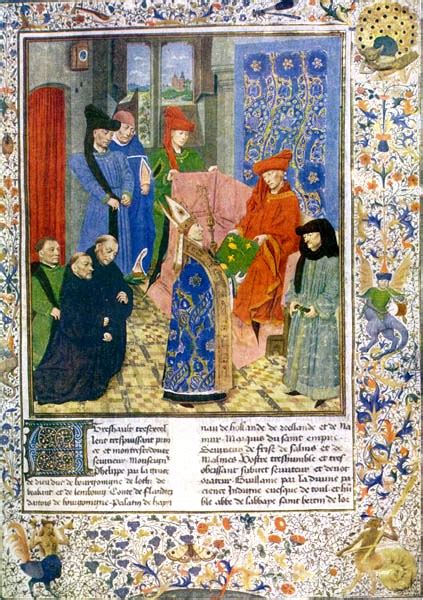 Treshault tresexcel
lent trespuissant prin
ce et mon tresredoubte
seigneur Monseigneur
Phelippe par la grace
de dieu duc de bourgoingne de loth de
brabant et de lembourg Conte de flandres
dartois de bourgoingne Palatin de hayn
nau de hollande de zeellande et de Na
mur Marquis du saint empire
Seigneur de frise de salins et de
Malines Vostre treshumble et tres
obeissant subiect serviteur et den orateur
Guillame par la divine pa
cience Indigne evesque de toul et hum
ble abbe de labbaye saint bertin de lor